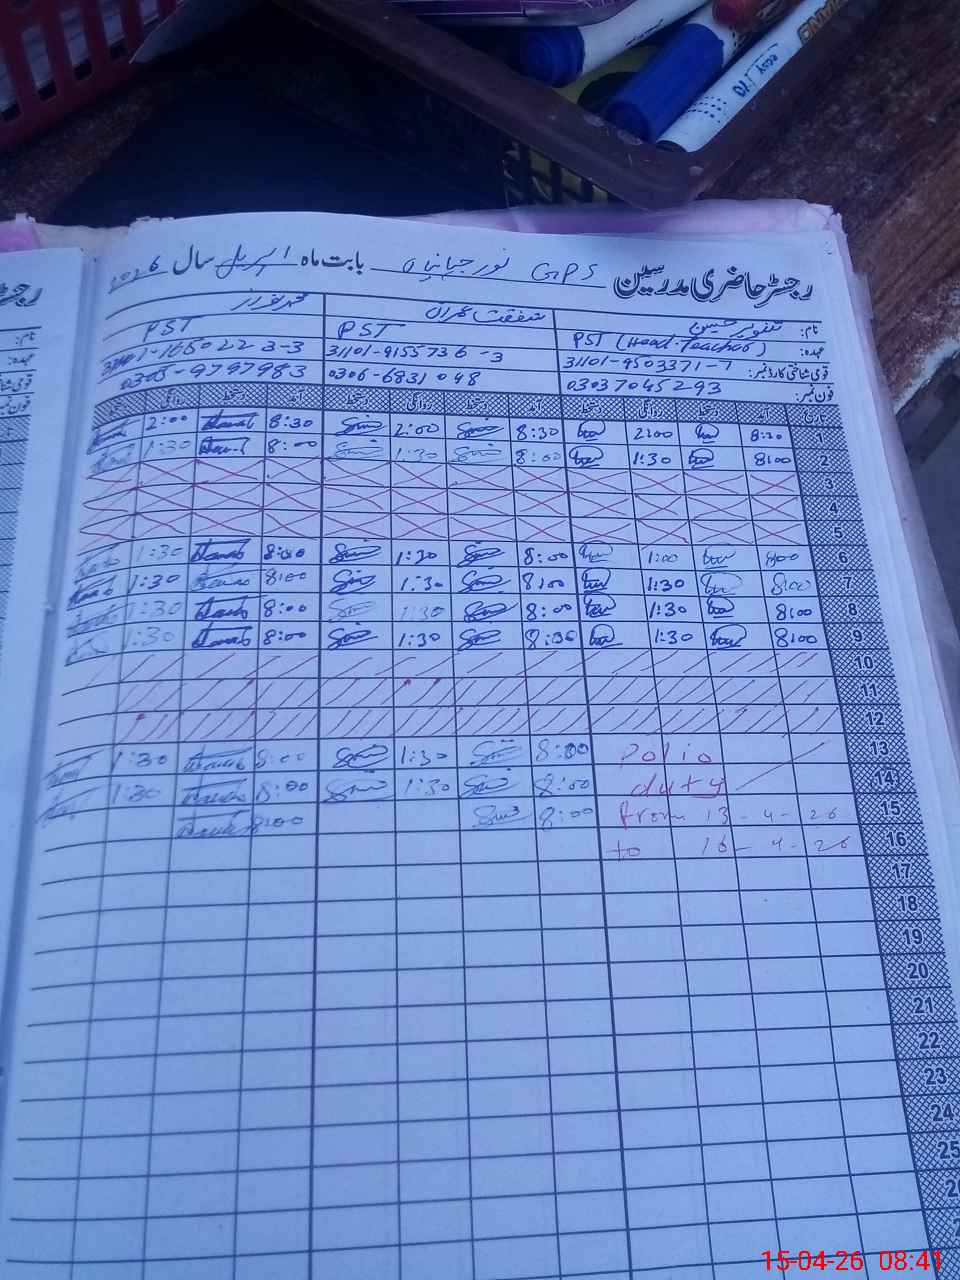 رجسٹر حاضری مدرسین GPS نور جہانیاں بابت ماہ اپریل سال 2026
نام: تنویر حسین شفقت عمران محمد نواز
عہدہ: PST (Head Teacher) PST PST
قومی شناختی کارڈ نمبر: 31101-9503371-7 31101-9155736-3 1650223-3
فون نمبر: 03037045293 0306-6831048 0305-9797983
تاریخ آمد دستخط روانگی دستخط آمد دستخط روانگی دستخط آمد دستخط روانگی دستخط
1 8:30 2:00 8:30 2:00 8:30 2:00
2 8:00 1:30 8:00 1:30 8:00 1:30
3
4
5
6 8:00 1:00 8:00 1:30 8:00 1:30
7 8:00 1:30 8:00 1:30 8:00 1:30
8 8:00 1:30 8:00 1:30 8:00 1:30
9 8:00 1:30 8:30 1:30 8:00 1:30
10
11
12
13 Polio 8:00 1:30 8:00 1:30
14 duty 8:00 1:30 8:00 1:30
15 From 13-4-26 8:00 8:00
16 to 16-4-26
17
18
19
20
21
22
23
24
25
15-04-26 08:41